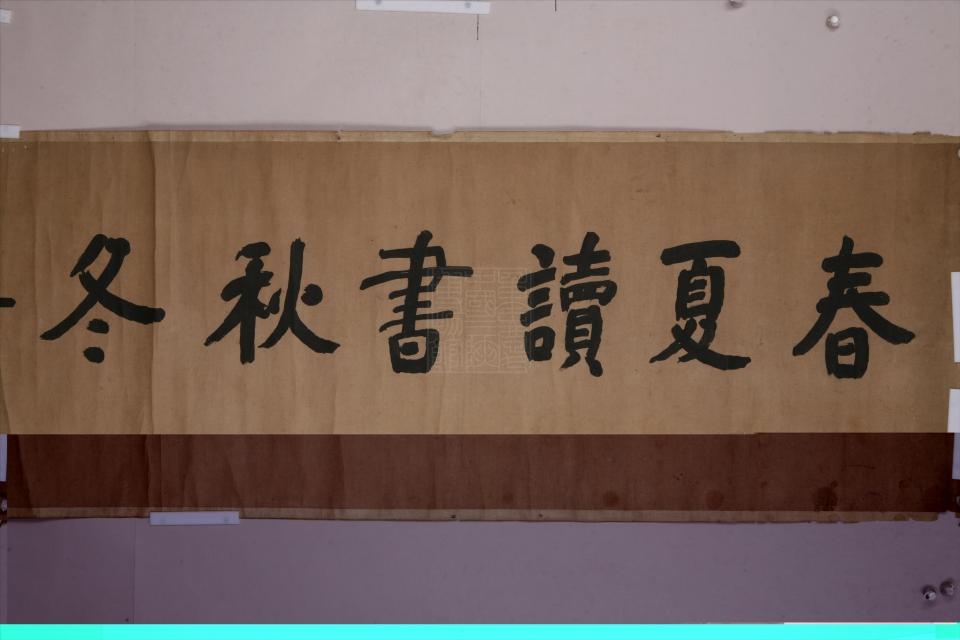 春夏讀書秋冬